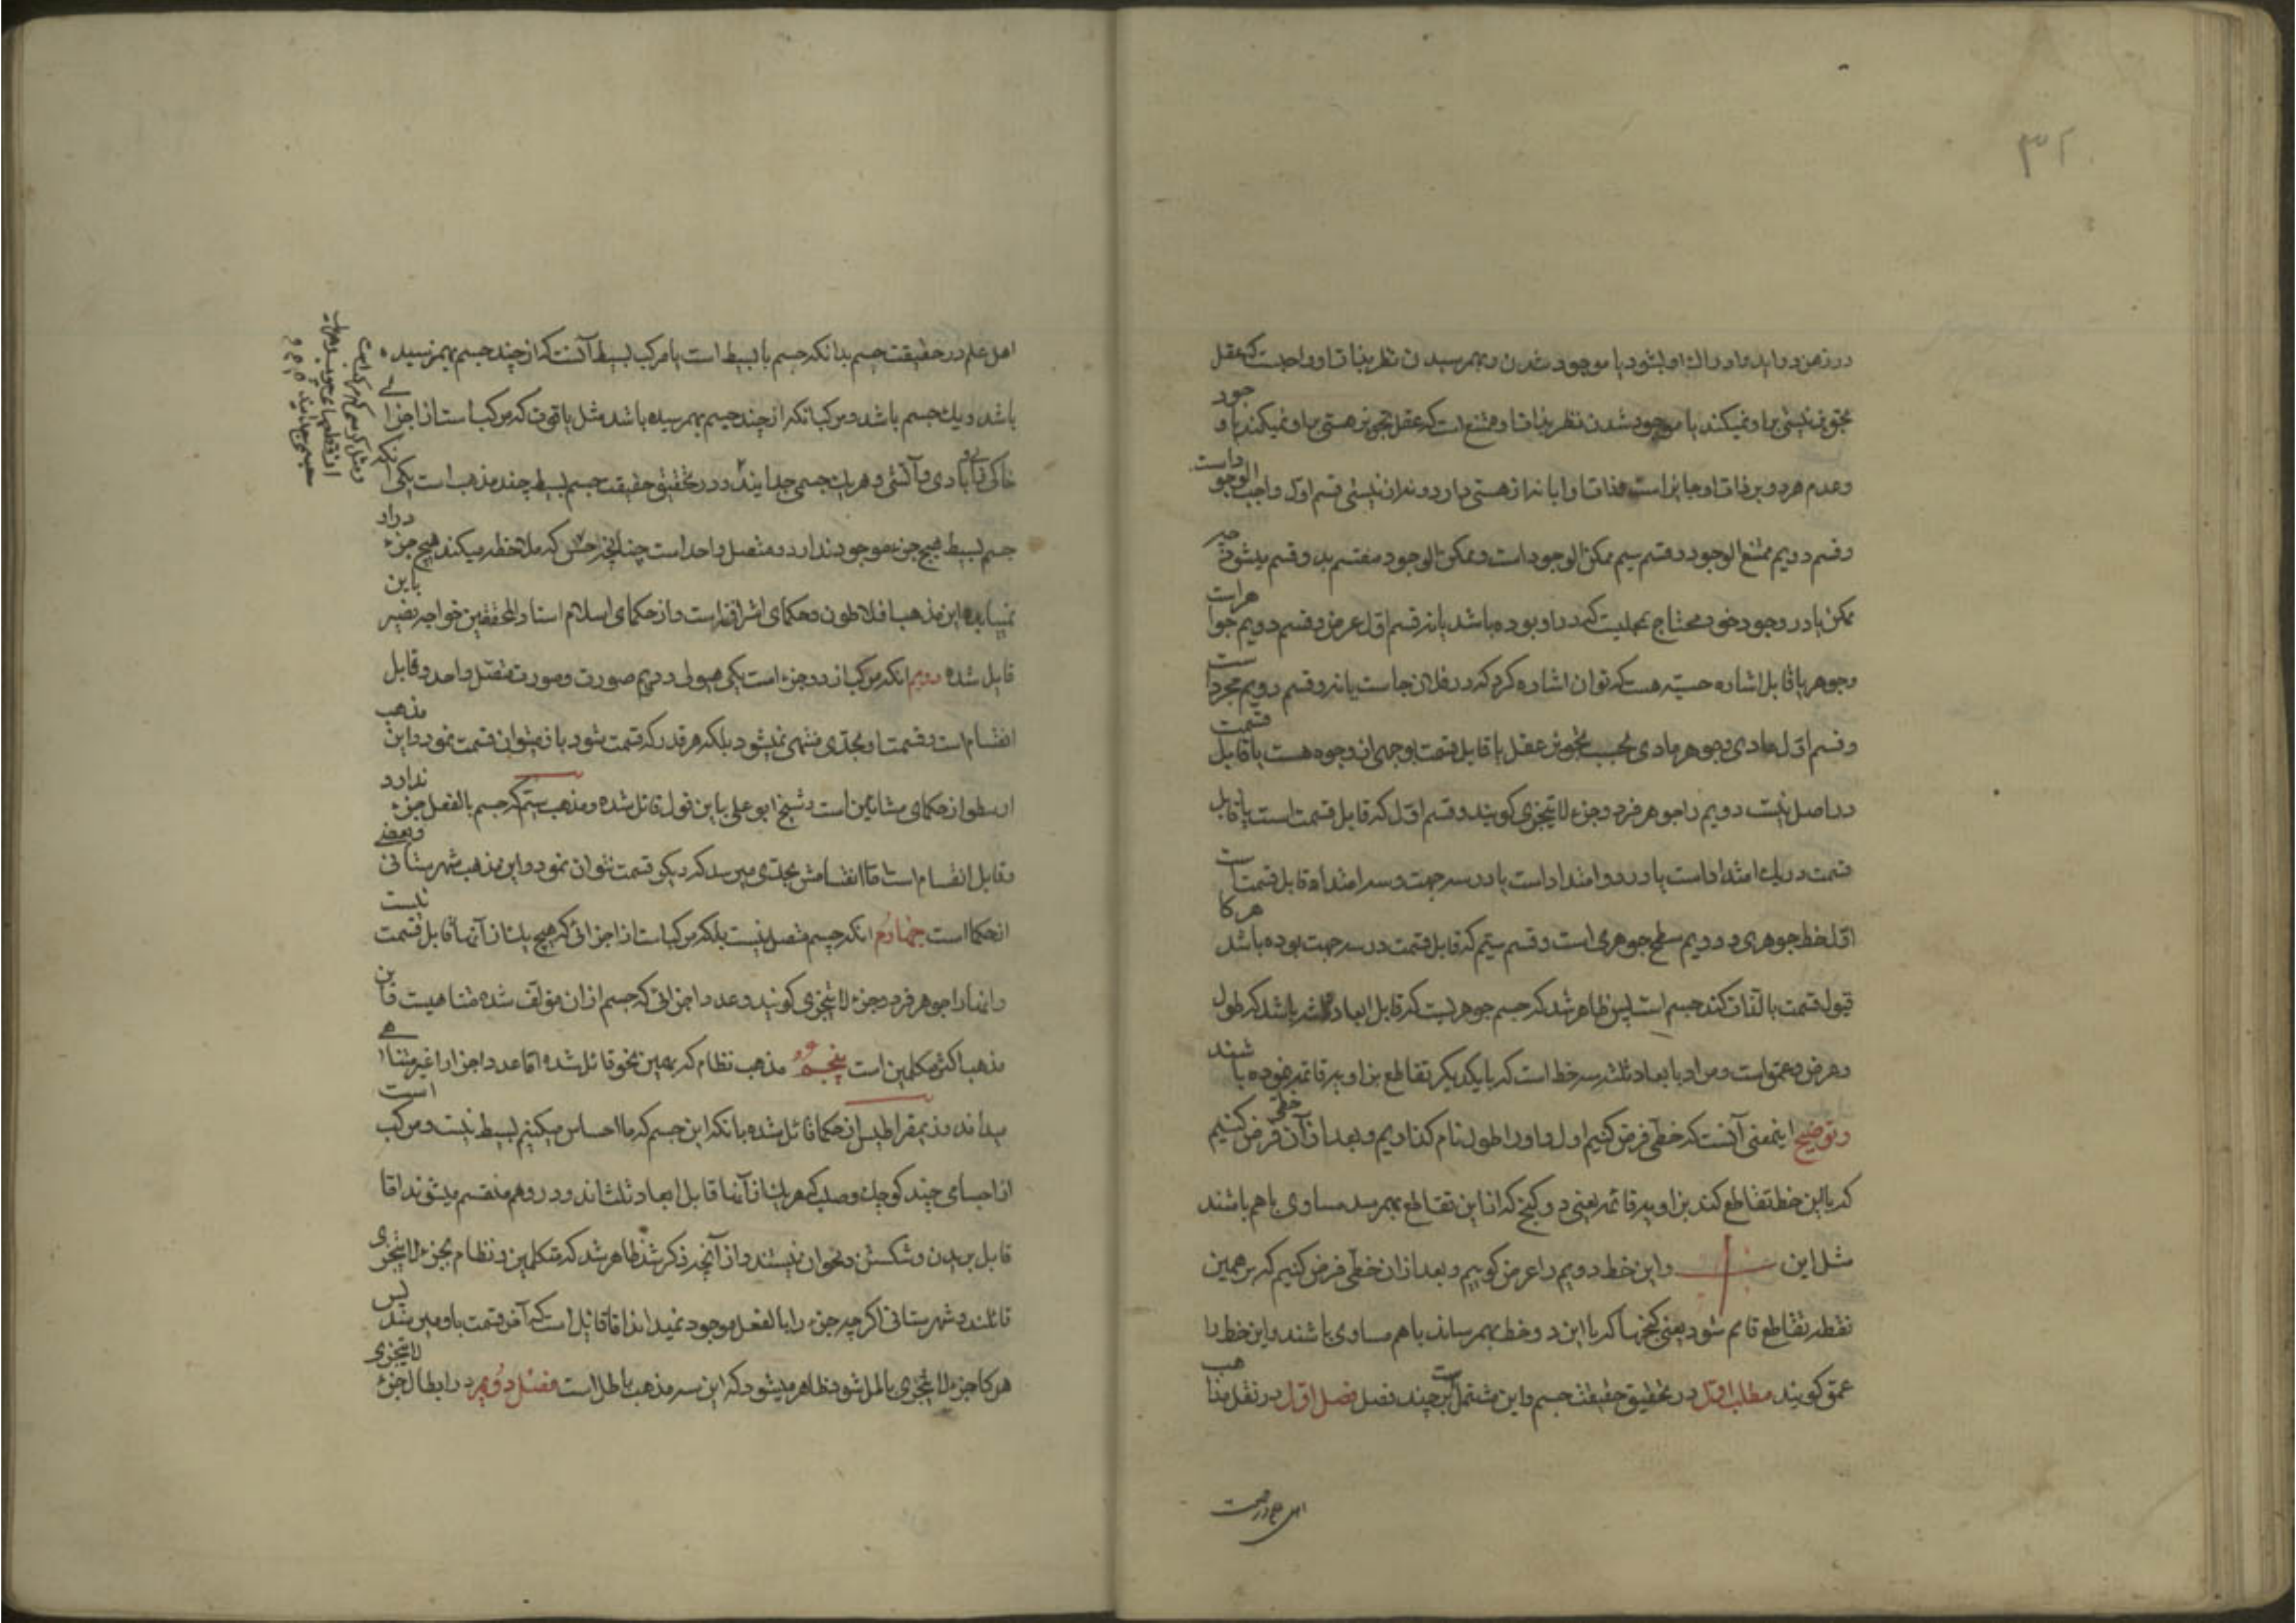 ۳۲
در ذهن در آید و ادراک او بشود یا موجود شدن و بهمرسیدن نظر بذات او واجبست که عقل
تجویز نیستی بر او نمیکند یا موجود شدن نظر بذات او ممتنع است که عقل تجویز هستی بر او نمیکند یا وجود
و عدم هر دو بر ذات او جایز است و ذات او ابا نه از هستی دارد و نه از نیستی قسم اول واجب الوجود است
و قسم دویم ممتنع الوجود و قسم سیم ممکن الوجود است و ممکن الوجود منقسم بدو قسم میشود چه
ممکن یا در وجود خود محتاج بمحلیست که در او بوده باشد یا نه قسم اول عرض و قسم دویم جوهر است
و جوهر یا قابل اشاره حسیه هست که توان اشاره کرد که در فلان جاست یا نه و قسم دویم مجرد است
و قسم اول مادی و جوهر مادی بحسب تجویز عقل یا قابل قسمت بوجهی از وجوه هست یا قابل قسمت
در اصل نیست دویم را جوهر فرد و جزء لا یتجزی گویند و قسم اول که قابل قسمت است یا قابل
قسمت در یک امتداد است یا در دو امتداد است یا در سه جهت و سه امتداد قابل قسمت است
اول خط جوهری و دویم سطح جوهری است و قسم سیم که قابل قسمت در سه جهت بوده باشد هرگاه
قبول قسمت بالذات کند جسم است پس ظاهر شد که جسم جوهریست که قابل ابعاد ثلثه باشد که طول
و عرض و عمق است و مراد با بعاد ثلثه سه خط است که با یکدیگر تقاطع بزاویه قائمه نموده باشند
و توضیح اینمعنی آنست که خطی فرض کنیم اول و او را طول نام گذاریم و بعد از آن خطی فرض کنیم
که با این خط تقاطع کند بزاویه قائمه یعنی دو کنج که از این تقاطع بهمرسد مساوی باهم باشند
مثل این و این خط دویم را عرض گوییم و بعد از ان خطی فرض کنیم که بر همین
نقطه تقاطع قایم شود یعنی کنجها که با این دو خط بهمرساند باهم مساوی باشند و این خط را
عمق گویند مطلب اول در تحقیق حقیقت جسم و این مشتمل است بر چند فصل فصل اول در نقل مذاهب
اهل علم در حقیقت
اهل علم در حقیقت جسم بدانکه جسم یا بسیط است یا مرکب بسیط آنست که از چند جسم بهم نرسیده
باشد و یک جسم باشد و مرکب آنکه از چند جسم بهمرسیده باشد مثل یاقوت که مرکب است از اجزای
خاکی و آبی و بادی و آتشی و هر یک جسمی جدایند و در تحقیق حقیقت جسم بسیط چند مذهب است یکی آنکه
جسم بسیط هیچ جزء موجود ندارد و متصل واحد است چنانچه حس که ملاحظه میکند هیچ جزء در او
نمییابد و این مذهب افلاطون و حکمای اشراقی است و از حکمای اسلام استاد المحققین خواجه نصیر باین
قایل شده دویم انکه مرکب از دو جزء است یکی هیولی و دویم صورت و صورت متصل واحد و قابل
انقسام است و قسمت او بحدی منتهی نمیشود بلکه هر قدر که قسمت شود باز میتوان قسمت نمود و این مذهب
ارسطو از حکمای مشائین است و شیخ ابو علی باین قول قائل شده و مذهب سیم آنکه جسم بالفعل جزء ندارد
و قابل انقسام است اما انقسامش بحدی میرسد که دیگر قسمت نتوان نمود و این مذهب شهرستانی و بعضی
از حکما است چهارم انکه جسم متصل نیست بلکه مرکب است از اجزائی که هیچ یک از آنها قابل قسمت نیست
و انها را جوهر فرد و جزء لا یتجزی گویند و عدد اجزائی که جسم از ان مؤلف شده متناهیست و این
مذهب اکثر متکلمین است پنجم مذهب نظام که بهمین نحو قائل شده اما عدد اجزا را غیر متناهی
میداند و ذیمقراطیس از حکما قائل شده بانکه این جسم که ما احساس میکنیم بسیط نیست و مرکب است
از اجسامی چند کوچک و صلب که هر یک از آنها قابل ابعاد ثلث اند و در وهم منقسم میشوند اما
قابل بریدن و شکستن و نحو ان نیستند و از آنچه ذکر شد ظاهر شد که متکلمین و نظام بجزء لا یتجزی
قائلند و شهرستانی اگر چه جزء را بالفعل موجود نمیداند اما قائل است که آخر قسمت باو میرسد پس
هر گاه جزء لا یتجزی باطل شود ظاهر میشود که این سه مذهب باطل است فصل دویم در ابطال جزء لا یتجزی